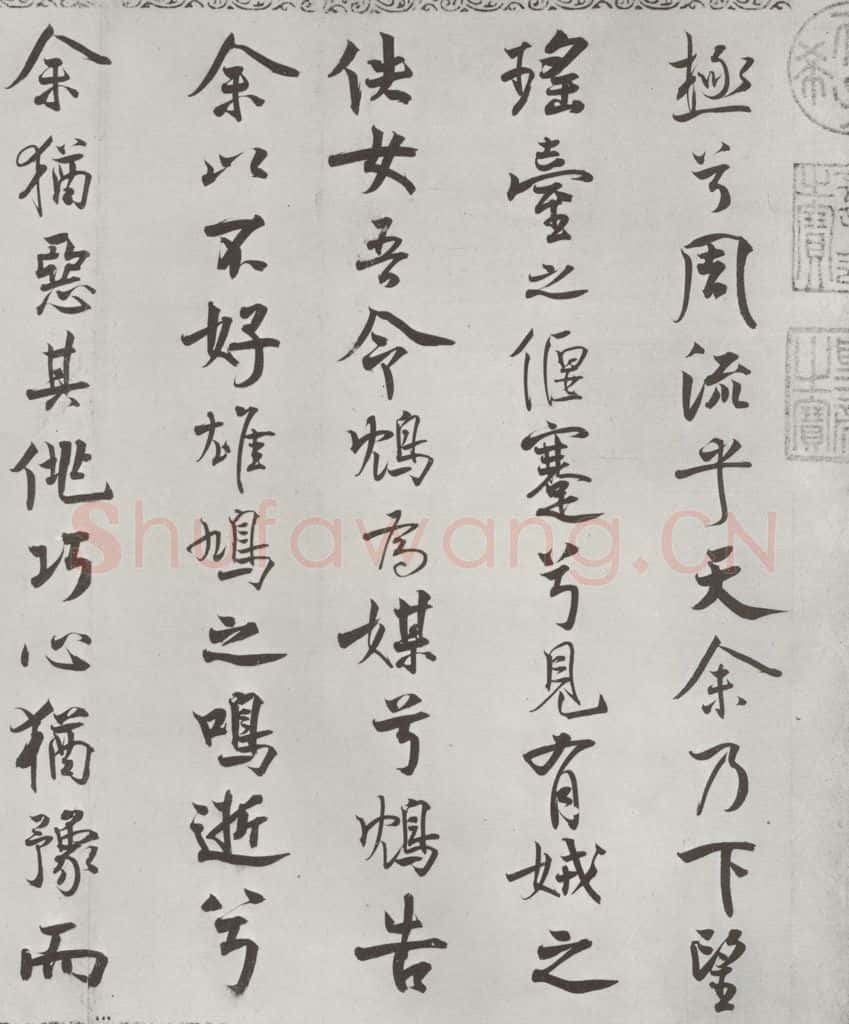 極兮周流乎天余乃下望
瑤臺之偃蹇兮見有娀之
佚女吾令鴆為媒兮鴆告
余以不好雄鳩之鳴逝兮
余猶惡其佻巧心猶豫而
Shufawang.CN